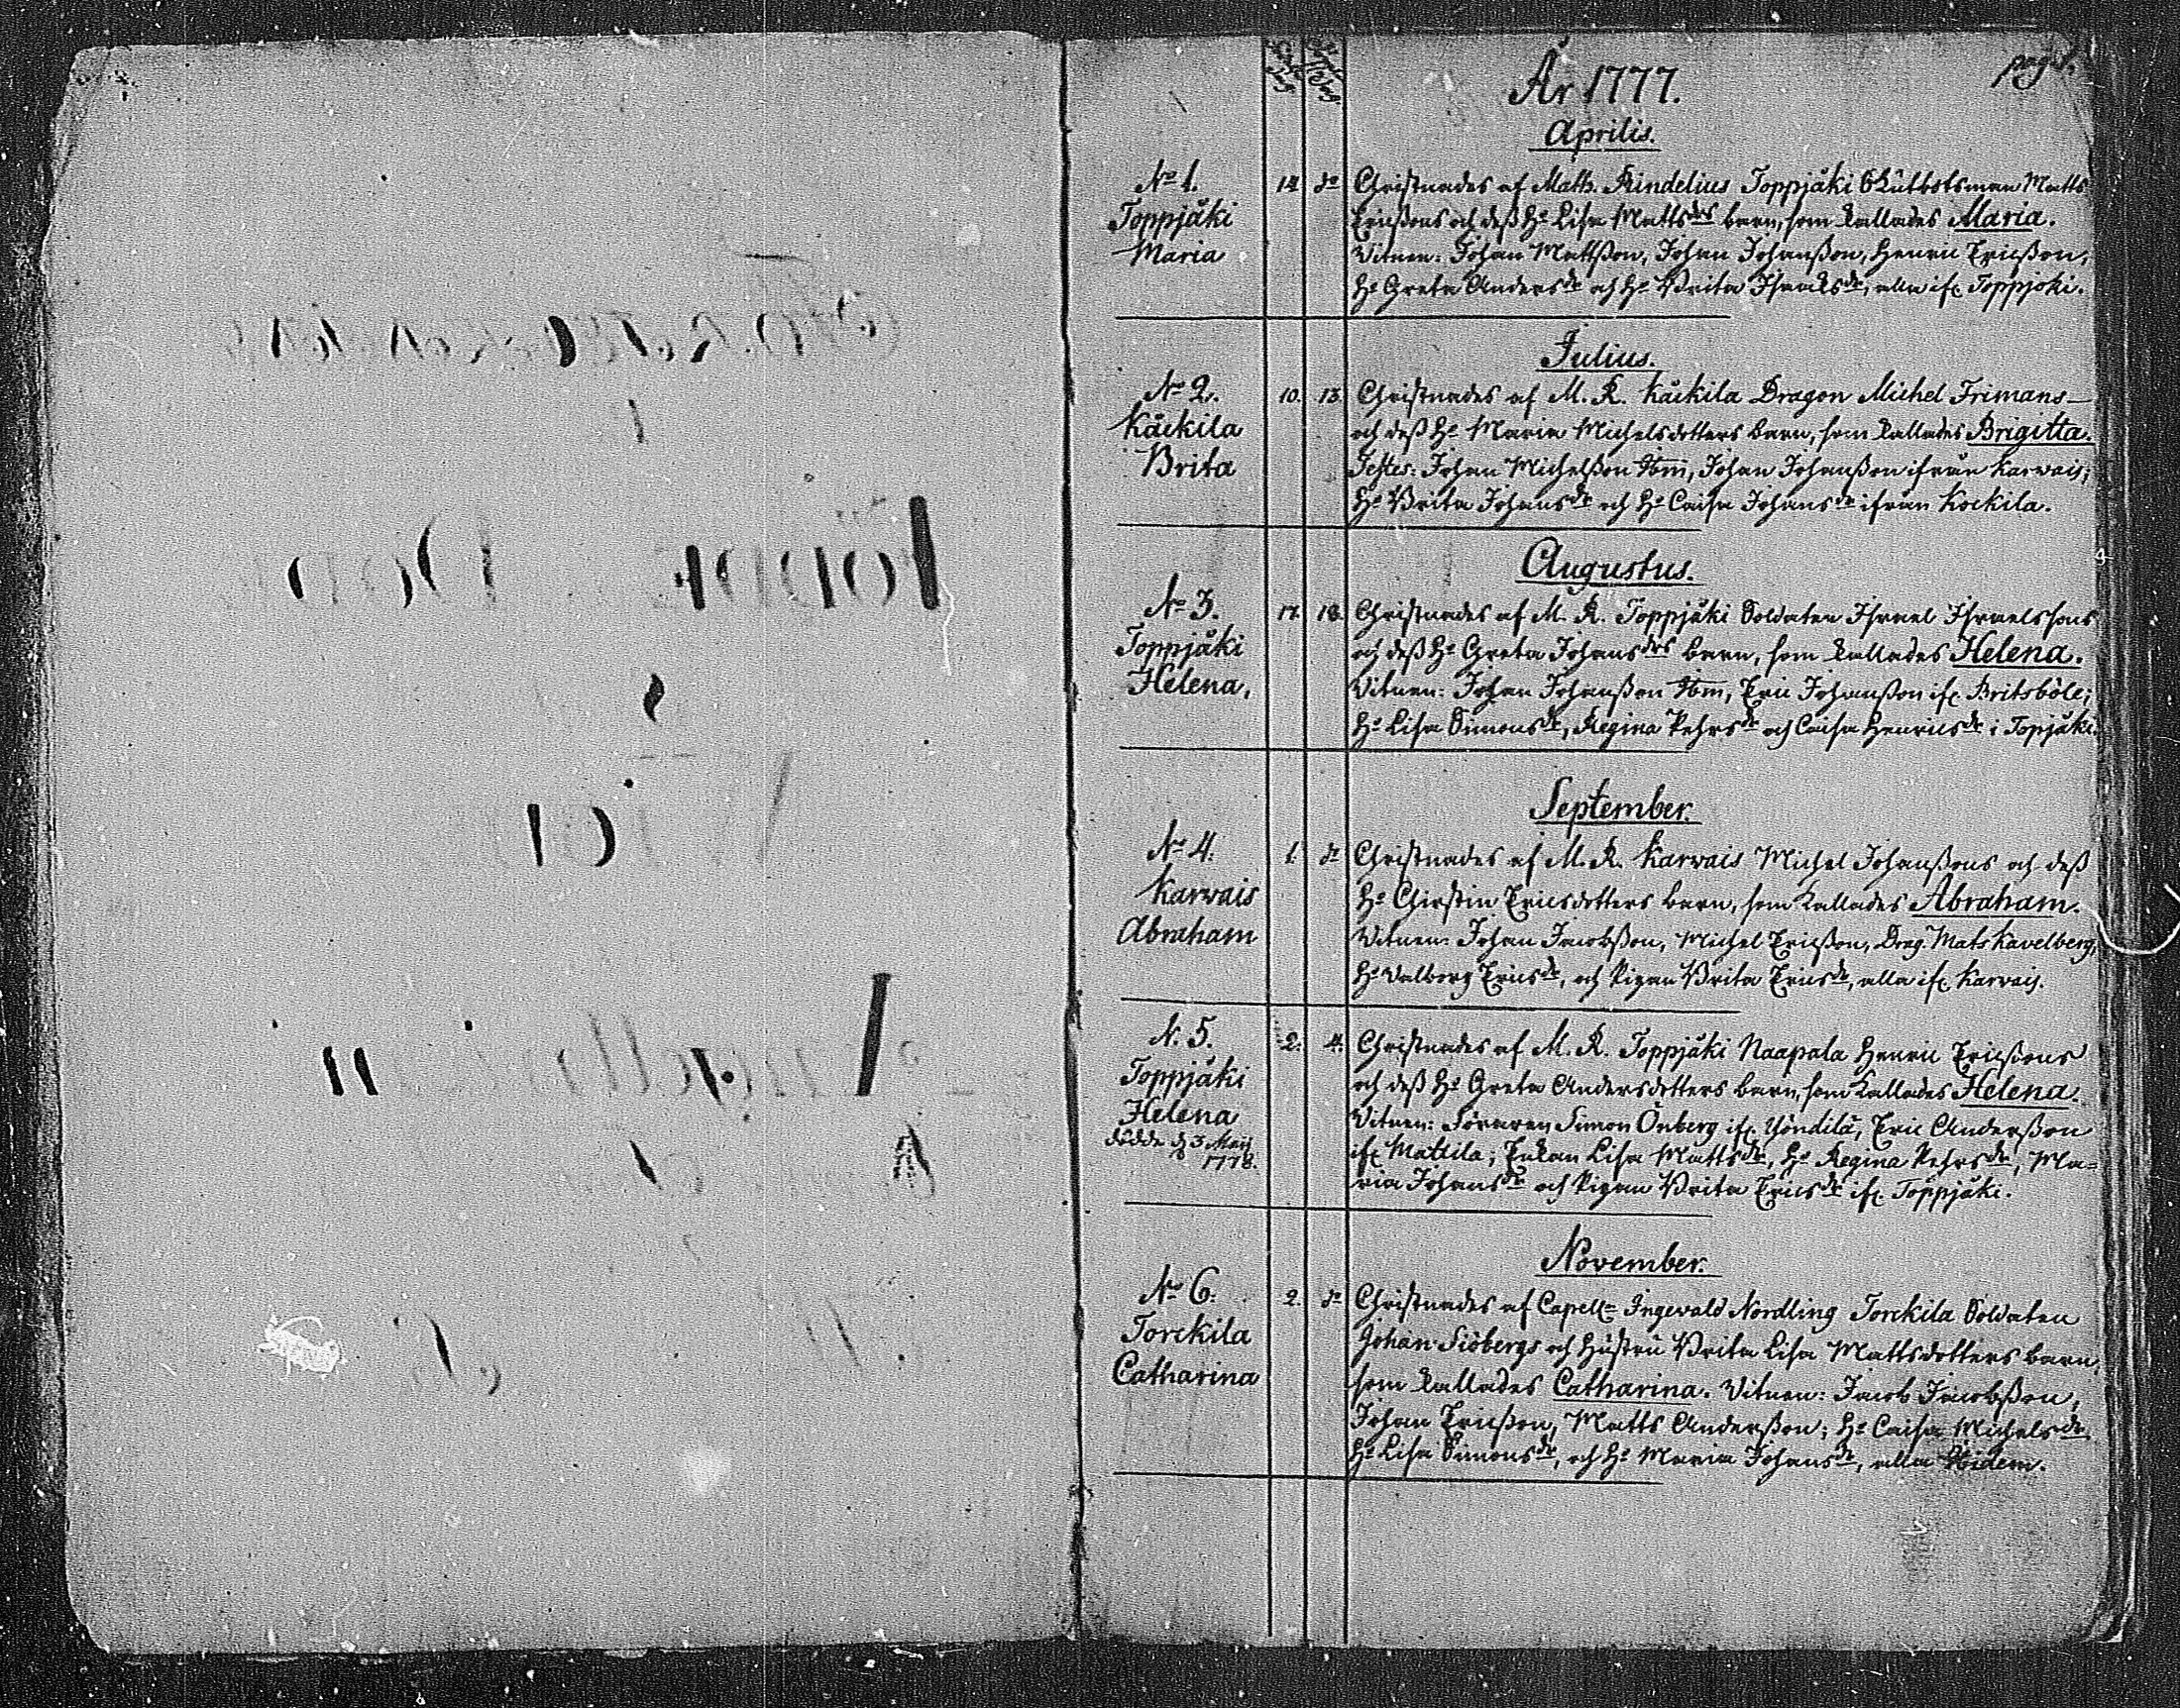 pag. 1.
År 1777.
Aprilis.
No 1.
Toppjåki
Maria
14 do Christnades af Math. Rindelius Toppjåki Skutbotsman Matts
Ericßons och deß H. Lisa Mattsdrs barn, som kallades Maria.
Vitnen: Johan Mattßon, Johan Johanßon, Henric Ericßon,
H. Greta Andersdr och H. Brita Israelsdr, alla ifr. Toppjoki.
Julius.
No 2.
Kåckila
Brita
10. 13. Christnades af M. R. Kåckila Dragon Michel Frimans
och deß H. Maria Michelsdotters barn, som kallades Brigitta.
Testes: Johan Michelßon Ibm, Johan Johanßon ifrån Karvais;
H. Brita Johansdr och H. Caisa Johansdr ifrån Kockila.
Augustus.
No 3.
Toppjåki
Helena,
17. 18. Christnades af M. R. Toppjåki Soldaten Israel Israelssons
och deß H. Greta Johansdrs barn, som kallades Helena.
Vitnen: Johan Johanßon Ibm, Eric Johanßon ifr. Britsböle;
H. Lisa Simonsdr, Regina Pehrsdr och Caisa Henricsdr i Topjåki.
September.
No 4.
Karvais
Abraham
1. do Christnades af M. R. Karvais Michel Johanßons och deß
H. Chirstin Ericsdotters barn, som kallades Abraham.
Vitnen: Johan Jacobßon, Michel Ericßon, Drag. Mats Kavelberg,
H. Valborg Ericsdr, och Pigan Brita Ericsdr, alla ifr. Karvais.
N. 5.
Toppjåki
Helena
dödde d 3 Maij
1778.
2. 4. Christnades af M. R. Toppjåki Naapala Henric Ericßons
och deß H. Greta Andersdotters barn, som kallades Helena.
Vitnen: Simon Önberg ifr. Yöndilä, Eric Anderßon
ifr. Mattila; Enkan Lisa Mattsdr, H. Regina Pehrsdr, Ma=
ria Johansdr och Pigan Brita Ericsdr ifr. Toppjåki.
November.
No 6.
Torckila
Catharina
2. do Christnades af Capelln Ingevald Nordling Torckila Soldaten
Johan Siöbergs och Hustru Brita Lisa Mattsdotters barn,
som kallades Catharina. Vitnen: Jacob Jacobßon,
Johan Ericßon, Matts Anderßon; H. Caisa Michelsdr,
H. Lisa Simonsdr, och H. Maria Johansdr, alla Ibidem.